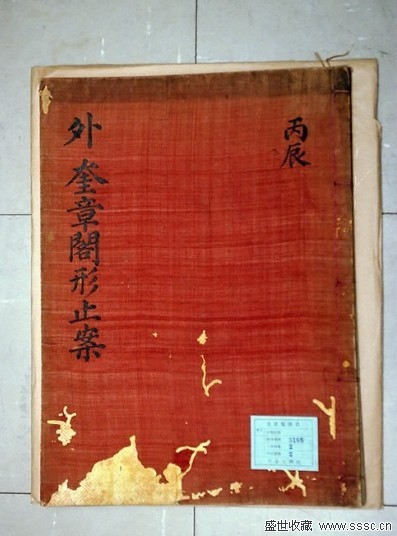 丙辰
外 奎章閣形止案
盛世收藏 www.sssc.cn